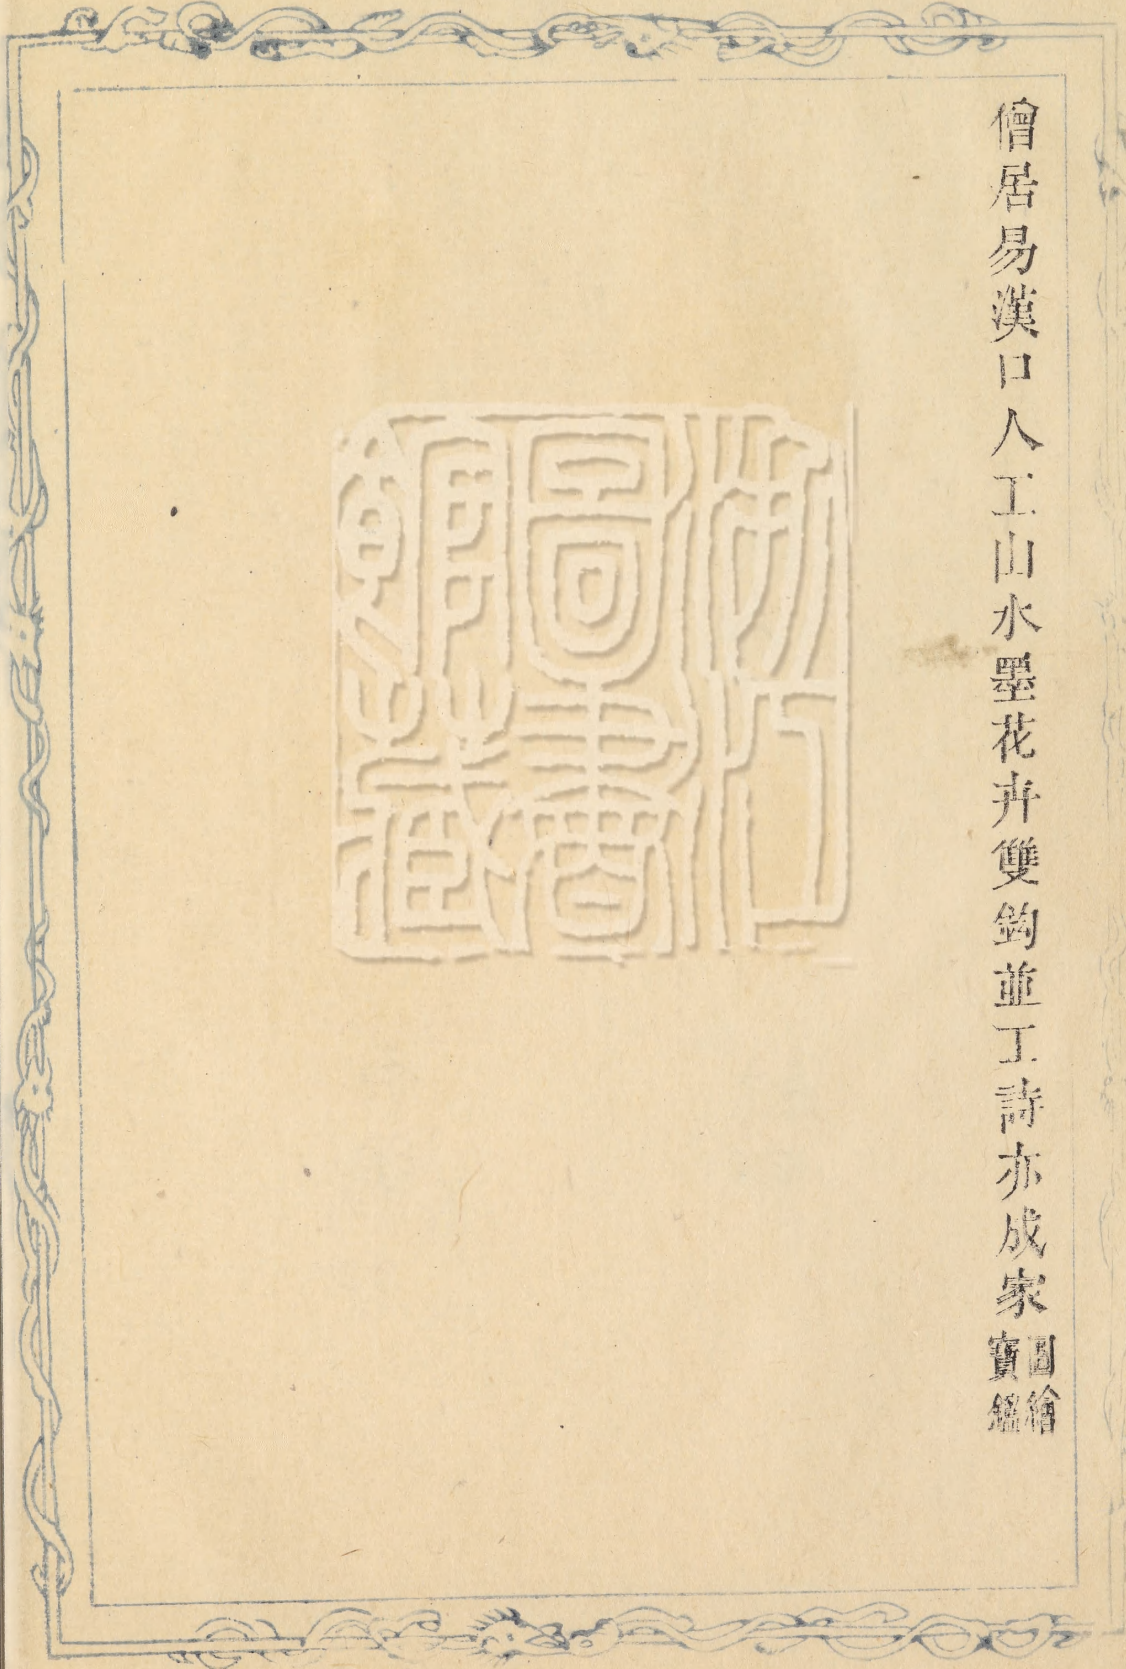 僧居易漢口人工山水墨花卉雙鈎並工詩亦成家
圖繪
寶鑑
圖書
館藏